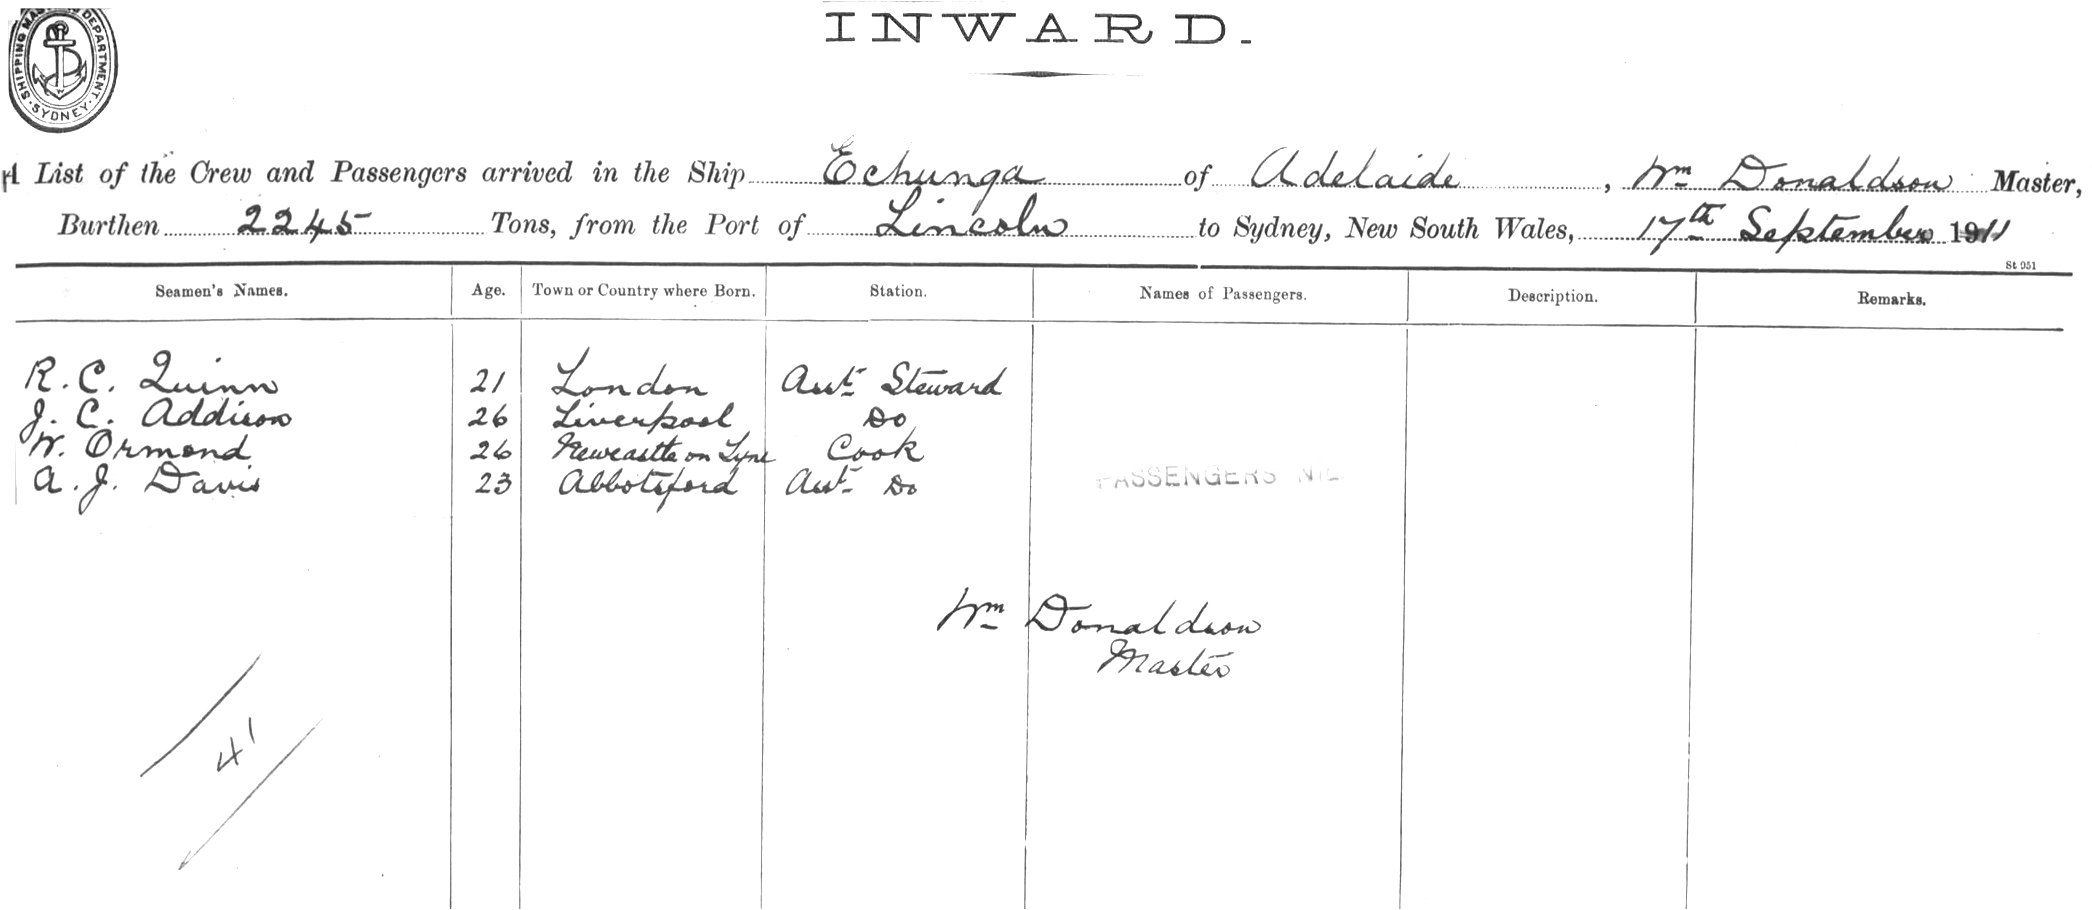 SHIPPING MASTERS DEPARTMENT · SYDNEY ·
INWARD.
A List of the Crew and Passengers arrived in the Ship Echunga of Adelaide, Wm Donaldson Master,
Burthen 2245 Tons, from the Port of Lincoln to Sydney, New South Wales, 17th September 1911
St 951
Seamen's Names. Age. Town or Country where Born. Station. Names of Passengers. Description. Remarks.
R. C. Quinn 21 London Asst Steward
J. C. Addison 26 Liverpool Do
W. Ormond 26 Newcastle on Tyne Cook
A. J. Davis 23 Abbotsford Asst Do
PASSENGERS NIL
Wm Donaldson
Master
41